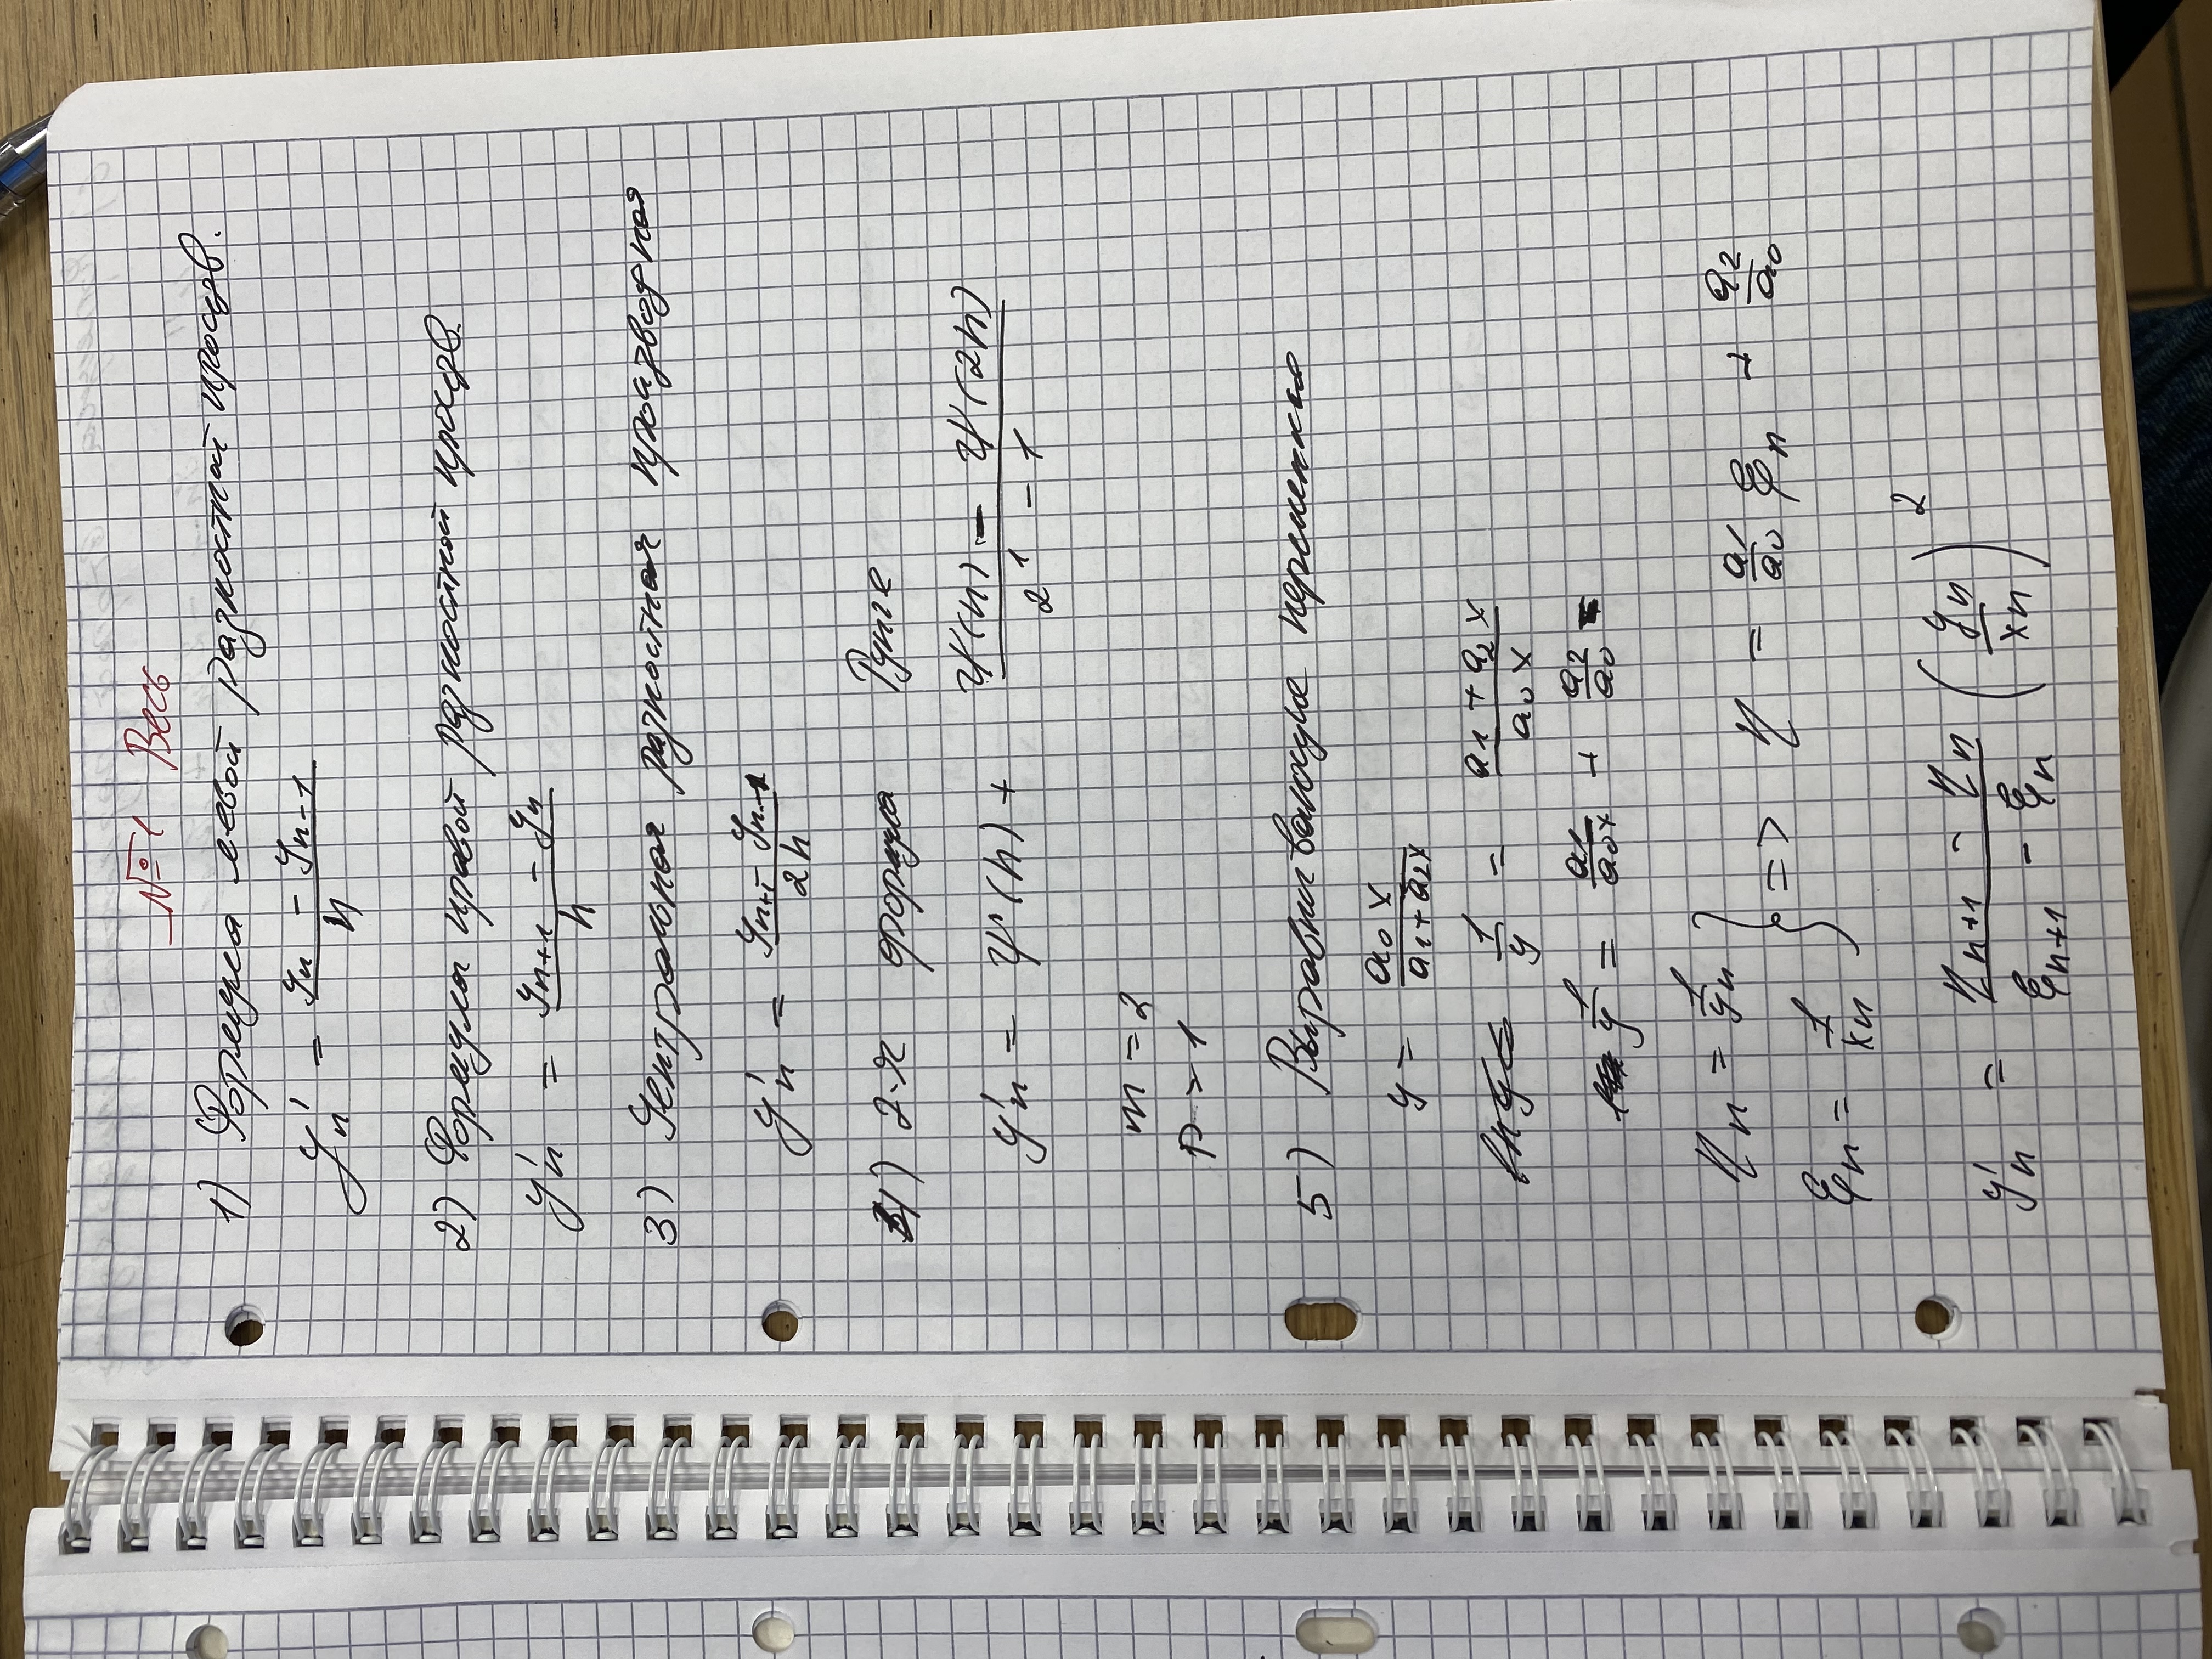 № 1 Весь
1) Формула левой разностной произв.
y'n = (yn - yn-1) / h
2) Формулы правой разностной произв.
y'n = (yn+1 - yn) / h
3) Центральная разностная производная
y'n = (yn+1 - yn-1) / 2h
4) 2-я формула Рунге
y'n = ψ(h) + (ψ(h) - ψ(2h)) / (2^1 - 1)
m = 2
p = 1
5) Выравнивающие переменные
y = a0 x / (a1 + a2 x)
1/y = (a1 + a2 x) / (a0 x)
1/y = a1/(a0 x) + a2/a0
ηn = 1/yn
ξn = 1/xn
} => η = a1/a0 ξn + a2/a0
y'n = (ηn+1 - ηn) / (ξn+1 - ξn) (yn/xn)^2